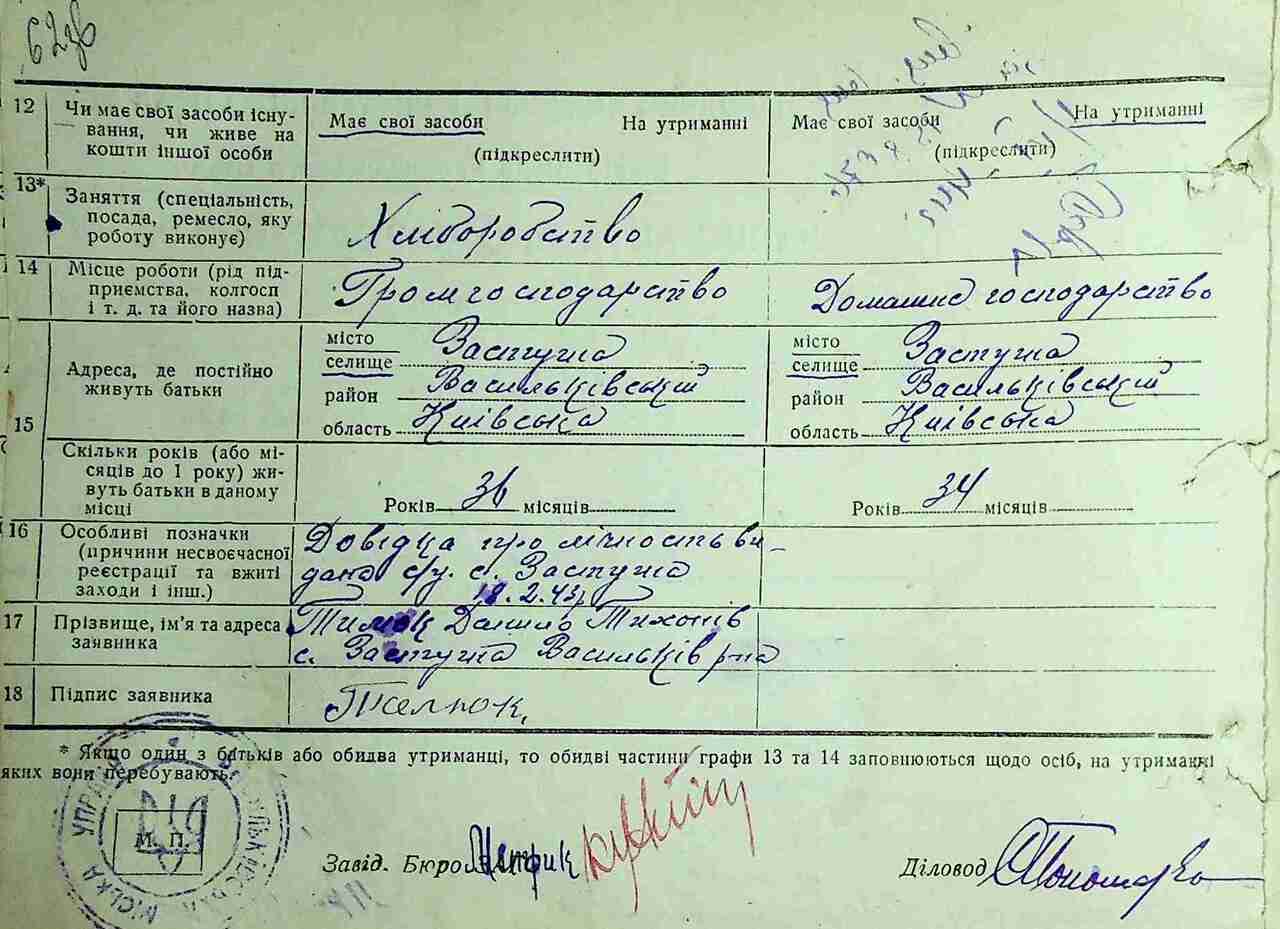 62зв
12 Чи має свої засоби існу-
вання, чи живе на
кошти іншої особи
Має свої засоби На утриманні
(підкреслити)
Має свої засоби На утриманні
(підкреслити)
13* Заняття (спеціальність,
посада, ремесло, яку
роботу виконує)
Хліборобство
14 Місце роботи (рід під-
приємства, колгосп
і т. д. та його назва)
Громгосподарство
Домашнє господарство
15 Адреса, де постійно
живуть батьки
місто
селище Застугна
район Васильківський
область Київська
місто
селище Застугна
район Васильківський
область Київська
Скільки років (або мі-
сяців до 1 року) жи-
вуть батьки в даному
місці
Років 36 місяців
Років 34 місяців
16 Особливі позначки
(причини несвоєчасної
реєстрації та вжиті
заходи і інш.)
Довідка про лічность ви-
дана с/у. с. Застугна
18.2.43р
17 Прізвище, ім'я та адреса
заявника
Данило Тихонів
с. Застугна Васильків р-на
18 Підпис заявника
* Якщо один з батьків або обидва утриманці, то обидві частини графи 13 та 14 заповнюються щодо осіб, на утриманні
яких вони перебувають.
ВАСИЛЬКІВСЬКА МІСЬКА УПРАВА
М. П.
Завід. Бюро
Діловод